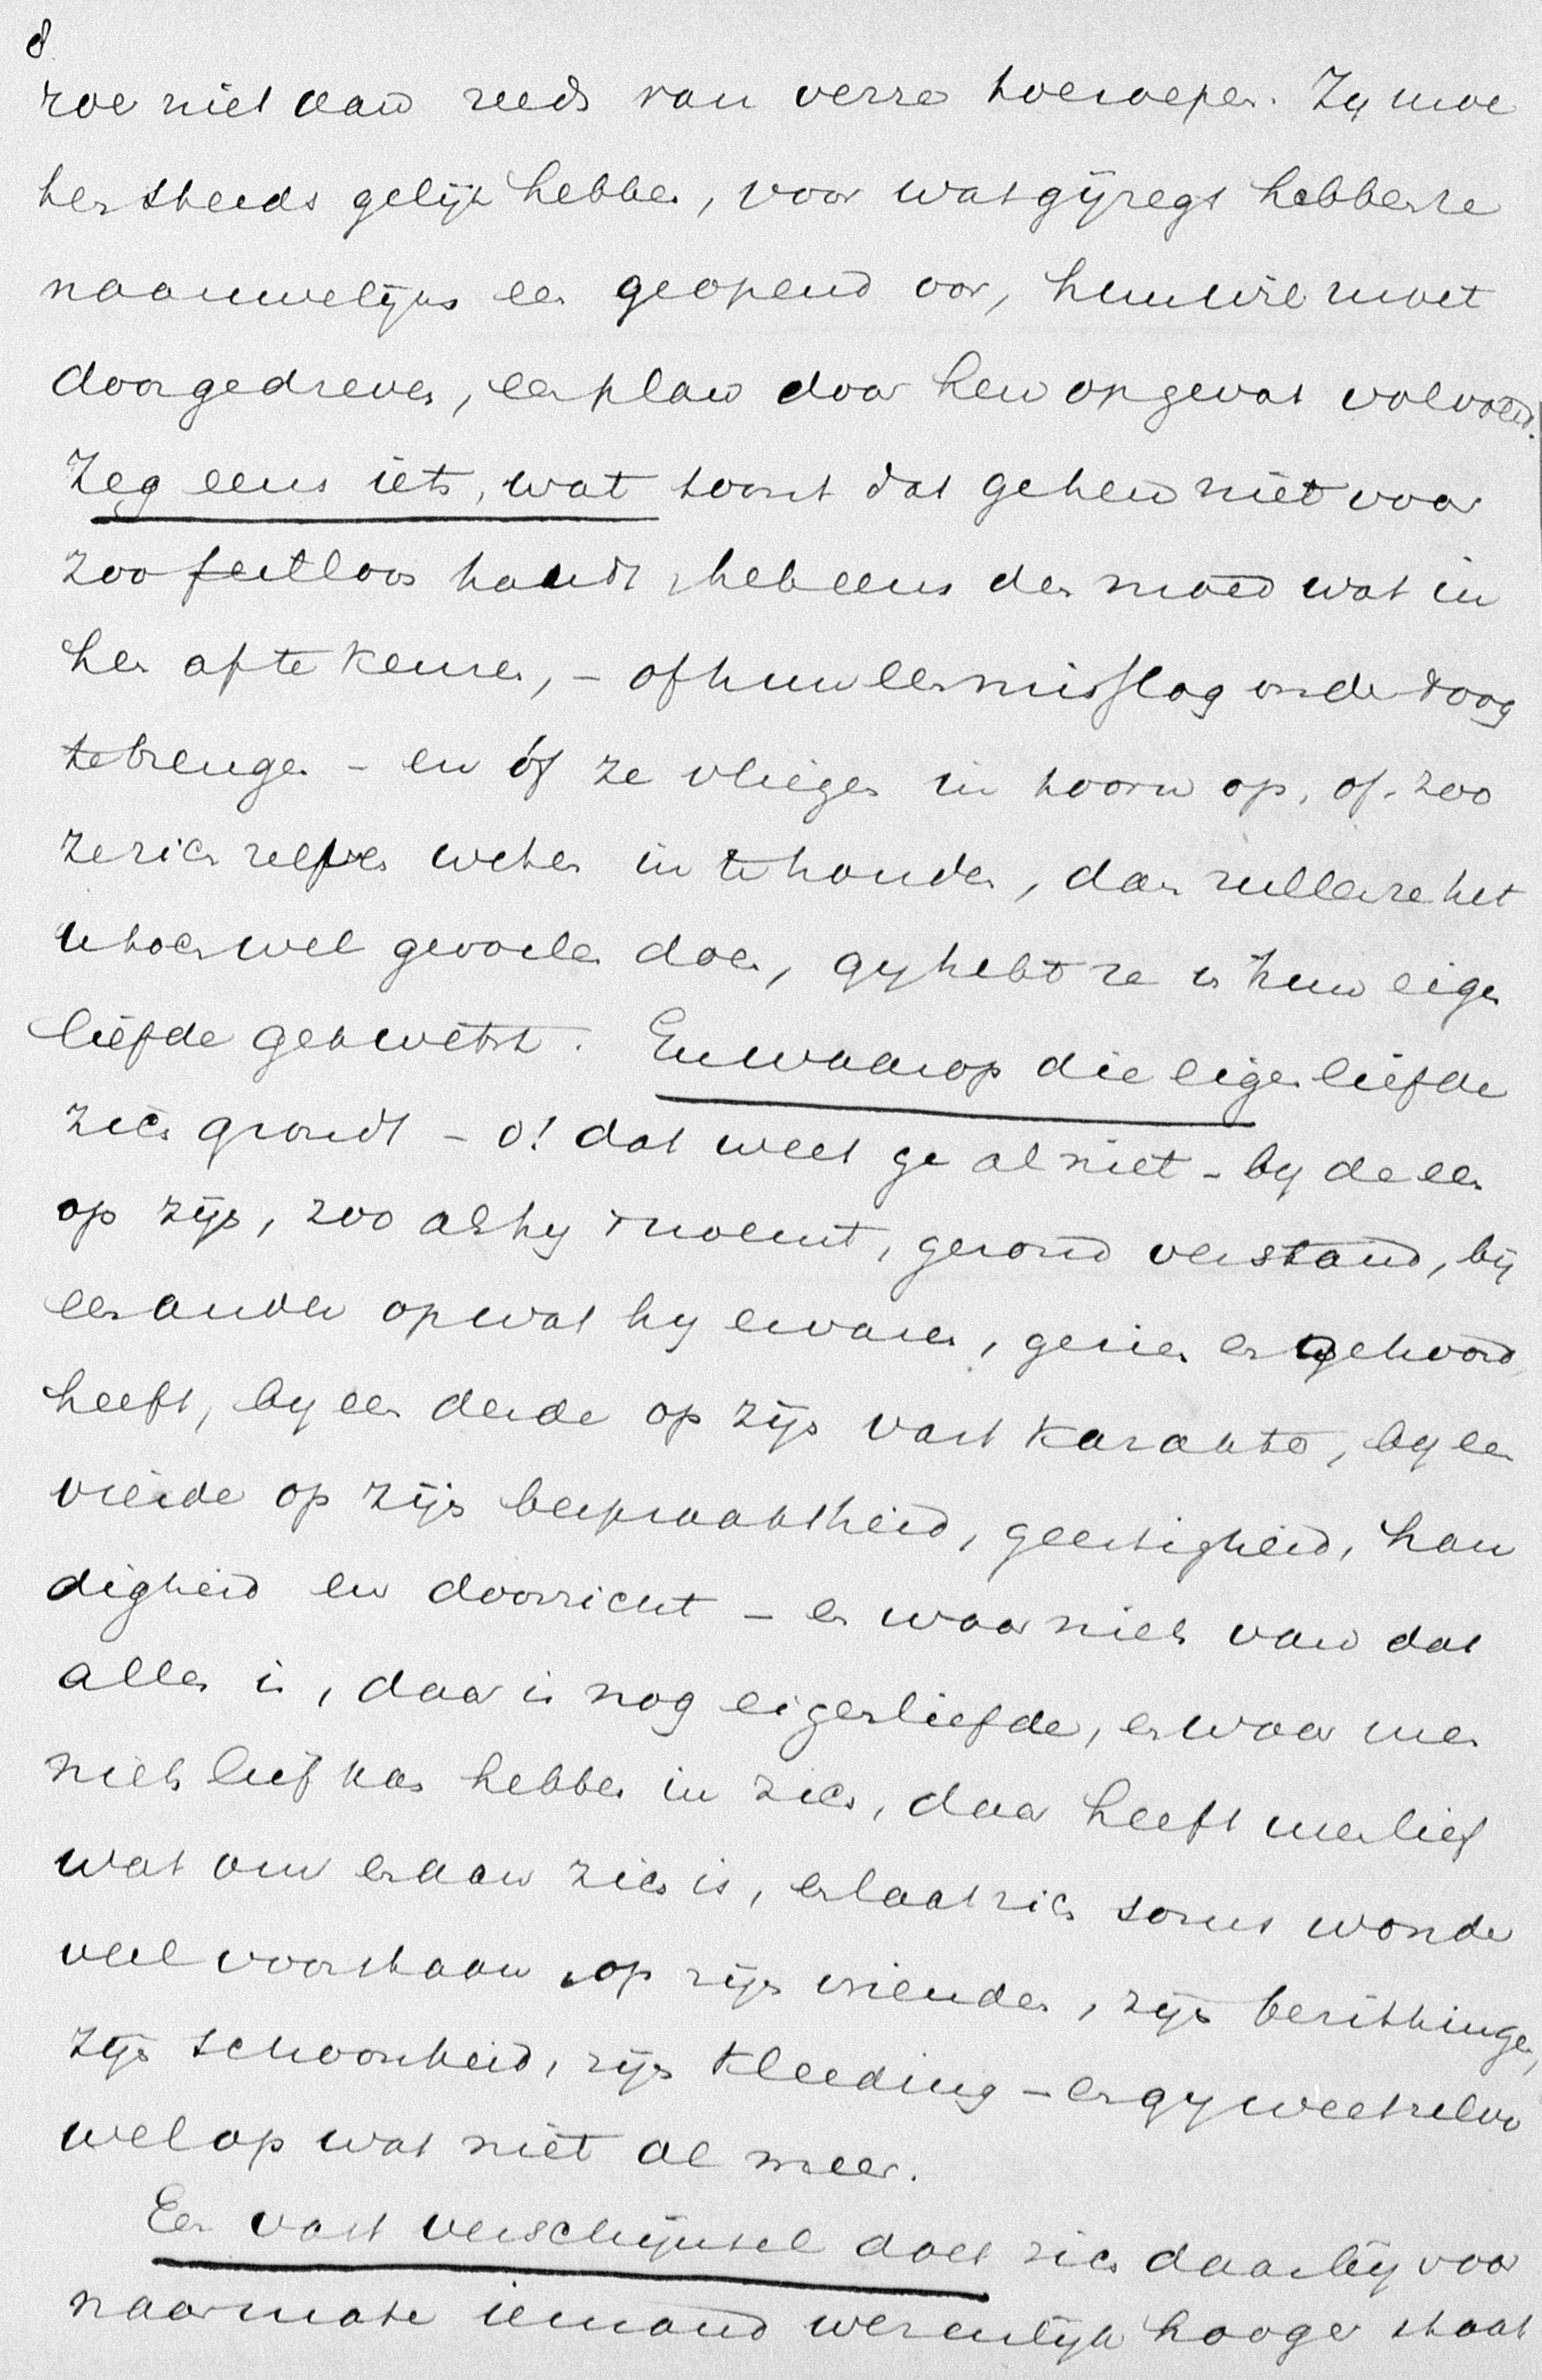 8
ze niet aan reeds van verre toeroepen. Zy moe
ten steeds gelijk hebben, voor wat gij zegt hebben ze
naauwelijks een geopend oor, hun wil moet
doorgedreven, een plan door hen opgevat volvoerd.
Zeg eens iets, wat toont dat ge hen niet voor
zoo feilloos houdt, heb eens den moed wat in
hen af te keuren, – of hun een misslag onder 't oog
te brengen – en òf ze vliegen in toorn op, of, zoo
ze zich zelven weten in te houden, dan zullen ze het
u toch wel gevoelen doen, gy hebt ze in hun eigen
liefde gekwetst. En waarop die eigenliefde
zich grondt – o! dat weet ge al niet – by de een
op zijn, zoo als hy meent, gezond verstand, bij
een ander op wat hy ervaren, gezien en gehoord
heeft, by een derde op zijn vast karakter, by een
vierde op zijn bespraaktheid, geestigheid, han
digheid en doorzicht – en waar niets van dat
alles is, daar is nog eigenliefde, en waar men
niets lief kan hebben in zich, daar heeft men lief
wat om en aan zich is, en laat zich soms wonder
veel voorstaan op zijn vrienden, zijn bezittingen,
zijn schoonheid, zijn kleeding – en gy weet zelve
wel op wat niet al meer.
Een vast verschijnsel doet zich daarbij voor
naarmate iemand wezenlijk hooger staat